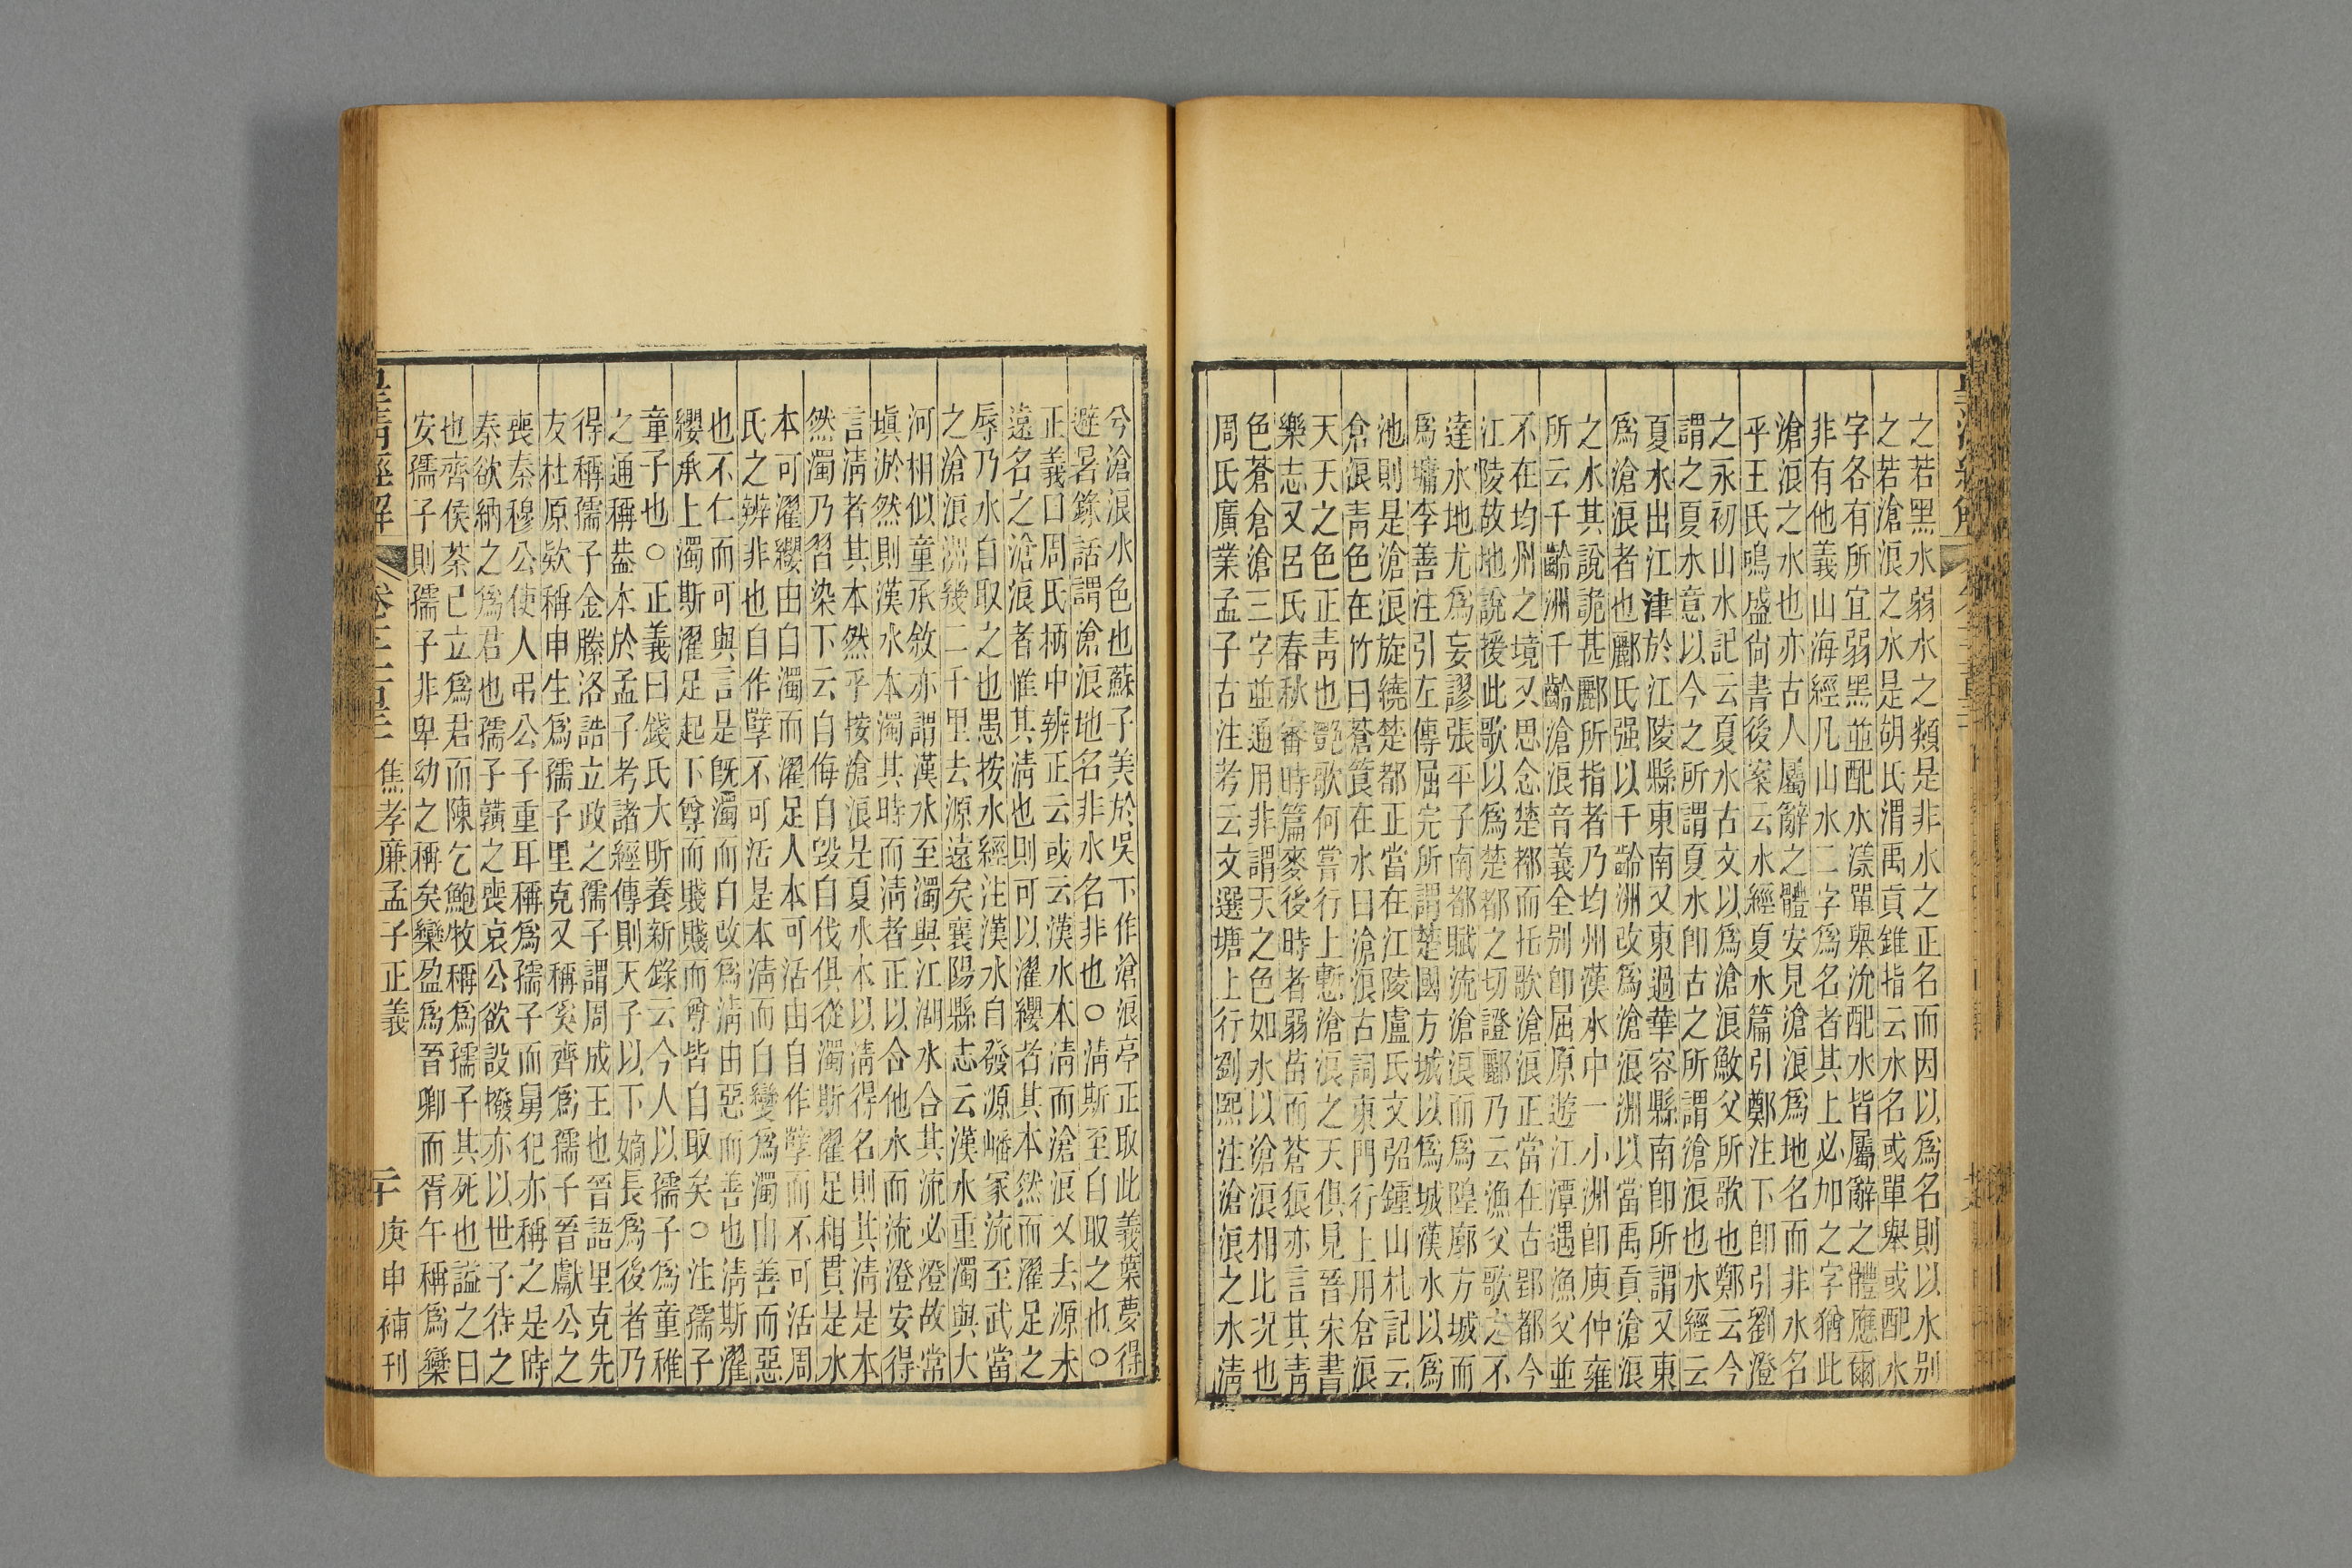 之若黑水弱水之類是非水之正名而因以爲名則以水别
之若滄浪之水是胡氏渭禹貢錐指云水名或單舉或配水
字各有所宜弱黑並配水漾單舉沇配水皆屬辭之體應爾
非有他義山海經凡山水二字爲名者其上必加之字猶此
滄浪之水也亦古人屬辭之體安見滄浪爲地名而非水名
乎王氏鳴盛尙書後案云水經夏水篇引鄭注下卽引劉澄
之永初山水記云夏水古文以爲滄浪䲣父所歌也鄭云今
謂之夏水意以今之所謂夏水卽古之所謂滄浪也水經云
夏水出江津於江陵縣東南又東過華容縣南卽所謂又東
爲滄浪者也酈氏强以千齡洲改爲滄浪洲以當禹貢滄浪
之水其說詭甚酈所指者乃均州漢水中一小洲卽庾仲雍
所云千齡洲千齡滄浪音義全别卽屈原遊江潭遇漁父並
不在均州之境又思念楚都而托歌滄浪正當在古郢都今
江陵故地說援此歌以爲楚都之切證酈乃云漁父歌之不
達水地尤爲妄謬張平子南都賦流滄浪而爲隍廓方城而
爲墉李善注引左傳屈完所謂楚國方城以爲城漢水以爲
池則是滄浪旋繞楚都正當在江陵盧氏文弨鍾山札記云
倉浪靑色在竹曰蒼筤在水曰滄浪古詞東門行上用倉浪
天天之色正靑也豔歌何嘗行上慙滄浪之天俱見晉宋書
樂志又呂氏春秋審時篇麥後時者弱苗而蒼狼亦言其靑
色蒼倉滄三字並通用非謂天之色如水以滄浪相比况也
周氏廣業孟子古注考云文選塘上行劉熙注滄浪之水淸
兮滄浪水色也蘇子美於吳下作滄浪亭正取此義葉夢得
避暑錄話謂滄浪地名非水名非也○淸斯至自取之也○
正義曰周氏柄中辨正云或云漢水本淸而滄浪又去源未
遠名之滄浪者惟其淸也則可以濯纓者其本然而濯足之
辱乃水自取之也愚按水經注漢水自發源嶓冢流至武當
之滄浪洲幾二千里去源遠矣襄陽縣志云漢水重濁與大
河相似童承敘亦謂漢水至濁與江湖水合其流必澄故常
塡淤然則漢水本濁其時而淸者正以合他水而流澄安得
言淸者其本然乎按滄浪是夏水本以淸得名則其淸是本
然濁乃習染下云自侮自毀自伐俱從濁斯濯足相貫是水
本可濯纓由自濁而濯足人本可活由自作孽而不可活周
氏之辨非也自作孽不可活是本淸而自變爲濁由善而惡
也不仁而可與言是旣濁而自改爲淸由惡而善也淸斯濯
纓承上濁斯濯足起下尊而賤賤而尊皆自取矣○注孺子
童子也○正義曰錢氏大昕養新錄云今人以孺子爲童稚
之通稱葢本於孟子考諸經傳則天子以下嫡長爲後者乃
得稱孺子金縢洛誥立政之孺子謂周成王也晉語里克先
友杜原欵稱申生爲孺子里克又稱奚齊爲孺子晉獻公之
喪秦穆公使人弔公子重耳稱爲孺子而舅犯亦稱之是時
秦欲納之爲君也孺子䵍之喪哀公欲設撥亦以世子待之
也齊侯荼已立爲君而陳乞鮑牧稱爲孺子其死也謚之曰
安孺子則孺子非卑幼之稱矣欒盈爲晉卿而胥午稱爲欒
皇清經解
焦孝廉孟子正義
二十
庚申補刊